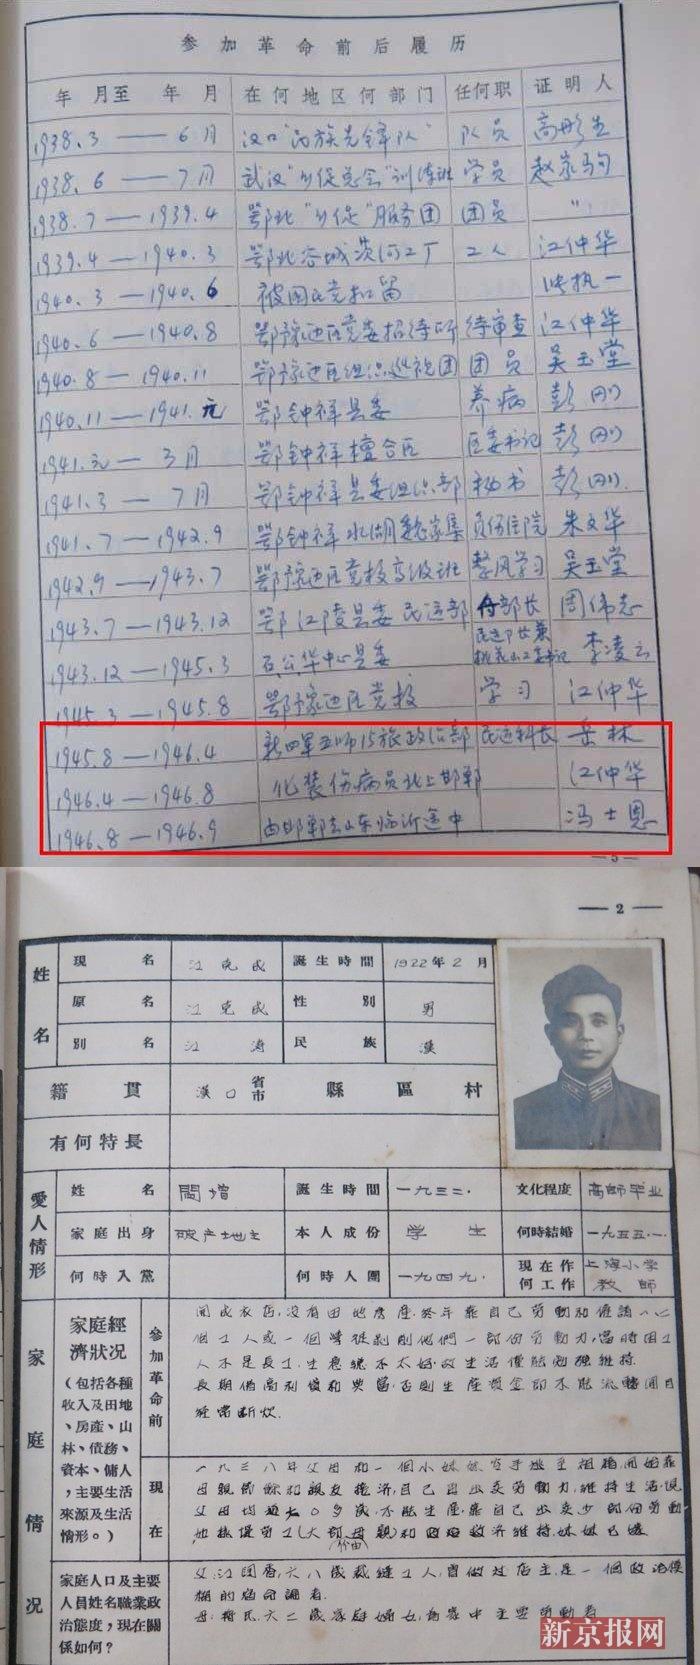 参加革命前后履历
年 月至 年 月 在何地区何部门 任何职 证明人
1938.3 — 6月 汉口"民族先锋队" 队员 高彤生
1938.6 — 7月 武汉"乡促总会"训练班 学员 赵家驹
1938.7 — 1939.4 鄂北"乡促"服务团 团员 〃
1939.4 — 1940.3 鄂北谷城茨河工厂 工人 江仲华
1940.3 — 1940.6 被国民党扣留 张执一
1940.6 — 1940.8 鄂豫边区党委招待所 待审查 江仲华
1940.8 — 1940.11 鄂豫边区组织巡视团 团员 吴玉堂
1940.11 — 1941.元 鄂钟祥县委 养病 彭刚
1941.元 — 3月 鄂钟祥檀合区 区委书记 彭刚
1941.3 — 7月 鄂钟祥县委组织部 秘书 彭刚
1941.7 — 1942.9 鄂钟祥水湖魏家集 负伤住院 朱文华
1942.9 — 1943.7 鄂豫边区党校高级班 整风学习 吴玉堂
1943.7 — 1943.12 鄂江陵县委民运部 付部长 周伟志
1943.12 — 1945.3 石公华中心县委 民运部长兼 李凌云
1945.3 — 1945.8 鄂豫边区党校 学习 江仲华
1945.8 — 1946.4 新四军五师15旅政治部 民运科长 岳林
1946.4 — 1946.8 化装伤病员北上邯郸 江仲华
1946.8 — 1946.9 由邯郸去山东临沂途中 冯士恩
— 5 —
— 2 —
姓名 現名 江克成 誕生時間 1922年2月
原名 江克成 性別 男
別名 江涛 民族 漢
籍貫 漢口 省市 縣 區 村
有何特長
愛人情形 姓名 閻增 誕生時間 一九三二. 文化程度 高師毕业
家庭出身 破产地主 本人成份 学生 何時結婚 一九五五.一.
何時入黨 何時入團 一九四九. 現在作何工作 上海小学教師
家庭情况
家庭經濟狀况
（包括各種收入及田地、房產、山林、債務、資本、傭人，主要生活來源及生活情形。）
參加革命前
開成衣店,没有田地房産.終年靠自己勞動和僱請一、二
個工人或一個學徒剥削他們一部份勞動力,當時因工
人不是長工,生意總不太好,故生活僅能勉強維持.
長期借高利債和典當,否則生産資金即不能流轉,
經常断炊.
現在
家庭人口及主要人員姓名職業政治態度，現在關係如何？
父:江国香,六八歲裁縫工人,曾做过店主,是一個政治模
糊的宿命論者.
母:楊氏,六二歲家庭婦女,為家中主要勞動者
新京报网